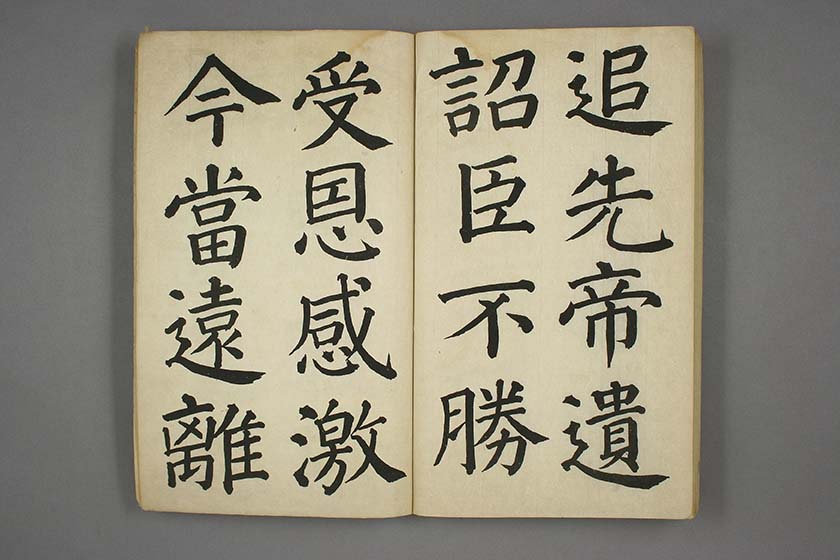 追先帝遺
詔臣不勝
受恩感激
今當遠離